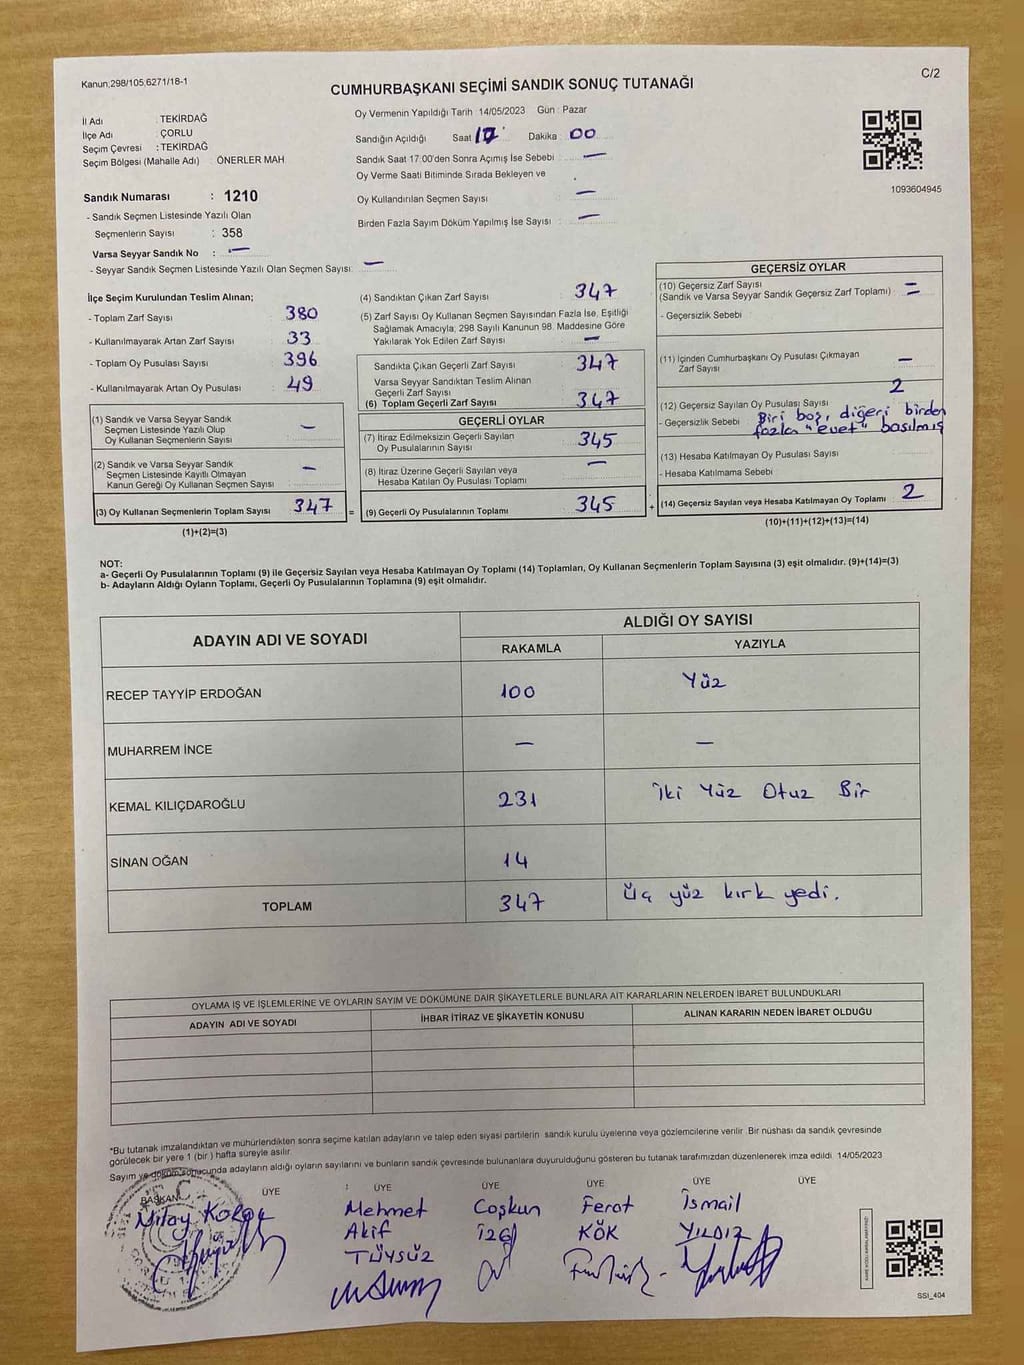 Kanun:298/105,6271/18-1
C/2
CUMHURBAŞKANI SEÇİMİ SANDIK SONUÇ TUTANAĞI
İl Adı : TEKİRDAĞ
İlçe Adı : ÇORLU
Seçim Çevresi : TEKİRDAĞ
Seçim Bölgesi (Mahalle Adı) : ÖNERLER MAH
Sandık Numarası : 1210
- Sandık Seçmen Listesinde Yazılı Olan
Seçmenlerin Sayısı : 358
Varsa Seyyar Sandık No : —
- Seyyar Sandık Seçmen Listesinde Yazılı Olan Seçmen Sayısı: —
Oy Vermenin Yapıldığı Tarih 14/05/2023 Gün : Pazar
Sandığın Açıldığı Saat 17 Dakika 00
Sandık Saat 17:00'den Sonra Açımış İse Sebebi —
Oy Verme Saati Bitiminde Sırada Bekleyen ve
Oy Kullandırılan Seçmen Sayısı —
Birden Fazla Sayım Döküm Yapılmış İse Sayısı —
1093604945
İlçe Seçim Kurulundan Teslim Alınan;
- Toplam Zarf Sayısı 380
- Kullanılmayarak Artan Zarf Sayısı 33
- Toplam Oy Pusulası Sayısı 396
- Kullanılmayarak Artan Oy Pusulası 49
(1) Sandık ve Varsa Seyyar Sandık
Seçmen Listesinde Yazılı Olup
Oy Kullanan Seçmenlerin Sayısı —
(2) Sandık ve Varsa Seyyar Sandık
Seçmen Listesinde Kayıtlı Olmayan
Kanun Gereği Oy Kullanan Seçmen Sayısı —
(3) Oy Kullanan Seçmenlerin Toplam Sayısı 347 =
(1)+(2)=(3)
(4) Sandıktan Çıkan Zarf Sayısı : 347
(5) Zarf Sayısı Oy Kullanan Seçmen Sayısından Fazla İse, Eşitliği
Sağlamak Amacıyla; 298 Sayılı Kanunun 98. Maddesine Göre
Yakılarak Yok Edilen Zarf Sayısı : —
Sandıkta Çıkan Geçerli Zarf Sayısı : 347
Varsa Seyyar Sandıktan Teslim Alınan
Geçerli Zarf Sayısı
(6) Toplam Geçerli Zarf Sayısı : 347
GEÇERLİ OYLAR
(7) İtiraz Edilmeksizin Geçerli Sayılan
Oy Pusulalarının Sayısı 345
(8) İtiraz Üzerine Geçerli Sayılan veya
Hesaba Katılan Oy Pusulası Toplamı —
(9) Geçerli Oy Pusulalarının Toplamı 345 +
GEÇERSİZ OYLAR
(10) Geçersiz Zarf Sayısı
(Sandık ve Varsa Seyyar Sandık Geçersiz Zarf Toplamı) : —
- Geçersizlik Sebebi
(11) İçinden Cumhurbaşkanı Oy Pusulası Çıkmayan
Zarf Sayısı —
(12) Geçersiz Sayılan Oy Pusulası Sayısı 2
- Geçersizlik Sebebi Biri boş, diğeri birden
fazla "evet" basılmış
(13) Hesaba Katılmayan Oy Pusulası Sayısı
- Hesaba Katılmama Sebebi
(14) Geçersiz Sayılan veya Hesaba Katılmayan Oy Toplamı 2
(10)+(11)+(12)+(13)=(14)
NOT:
a- Geçerli Oy Pusulalarının Toplamı (9) ile Geçersiz Sayılan veya Hesaba Katılmayan Oy Toplamı (14) Toplamları, Oy Kullanan Seçmenlerin Toplam Sayısına (3) eşit olmalıdır. (9)+(14)=(3)
b- Adayların Aldığı Oyların Toplamı, Geçerli Oy Pusulalarının Toplamına (9) eşit olmalıdır.
ADAYIN ADI VE SOYADI
ALDIĞI OY SAYISI
RAKAMLA YAZIYLA
RECEP TAYYİP ERDOĞAN 100 Yüz
MUHARREM İNCE — —
KEMAL KILIÇDAROĞLU 231 İki Yüz Otuz Bir
SİNAN OĞAN 14
TOPLAM 347 Üç yüz kırk yedi.
OYLAMA İŞ VE İŞLEMLERİNE VE OYLARIN SAYIM VE DÖKÜMÜNE DAİR ŞİKAYETLERLE BUNLARA AİT KARARLARIN NELERDEN İBARET BULUNDUKLARI
ADAYIN ADI VE SOYADI İHBAR İTİRAZ VE ŞİKAYETİN KONUSU ALINAN KARARIN NEDEN İBARET OLDUĞU
*Bu tutanak imzalandıktan ve mühürlendikten sonra seçime katılan adayların ve talep eden siyasi partilerin sandık kurulu üyelerine veya gözlemcilerine verilir. Bir nüshası da sandık çevresinde
görülecek bir yere 1 (bir) hafta süreyle asılır.
Sayım ve döküm sonucunda adayların aldığı oyların sayılarını ve bunların sandık çevresinde bulunanlara duyurulduğunu gösteren bu tutanak tarafımızdan düzenlenerek imza edildi. 14/05/2023
BAŞKAN ÜYE : ÜYE ÜYE ÜYE ÜYE ÜYE
Mehmet Coşkun Ferat İsmail
Akif KÖK YILDIZ
TÜYSÜZ
SSI_404